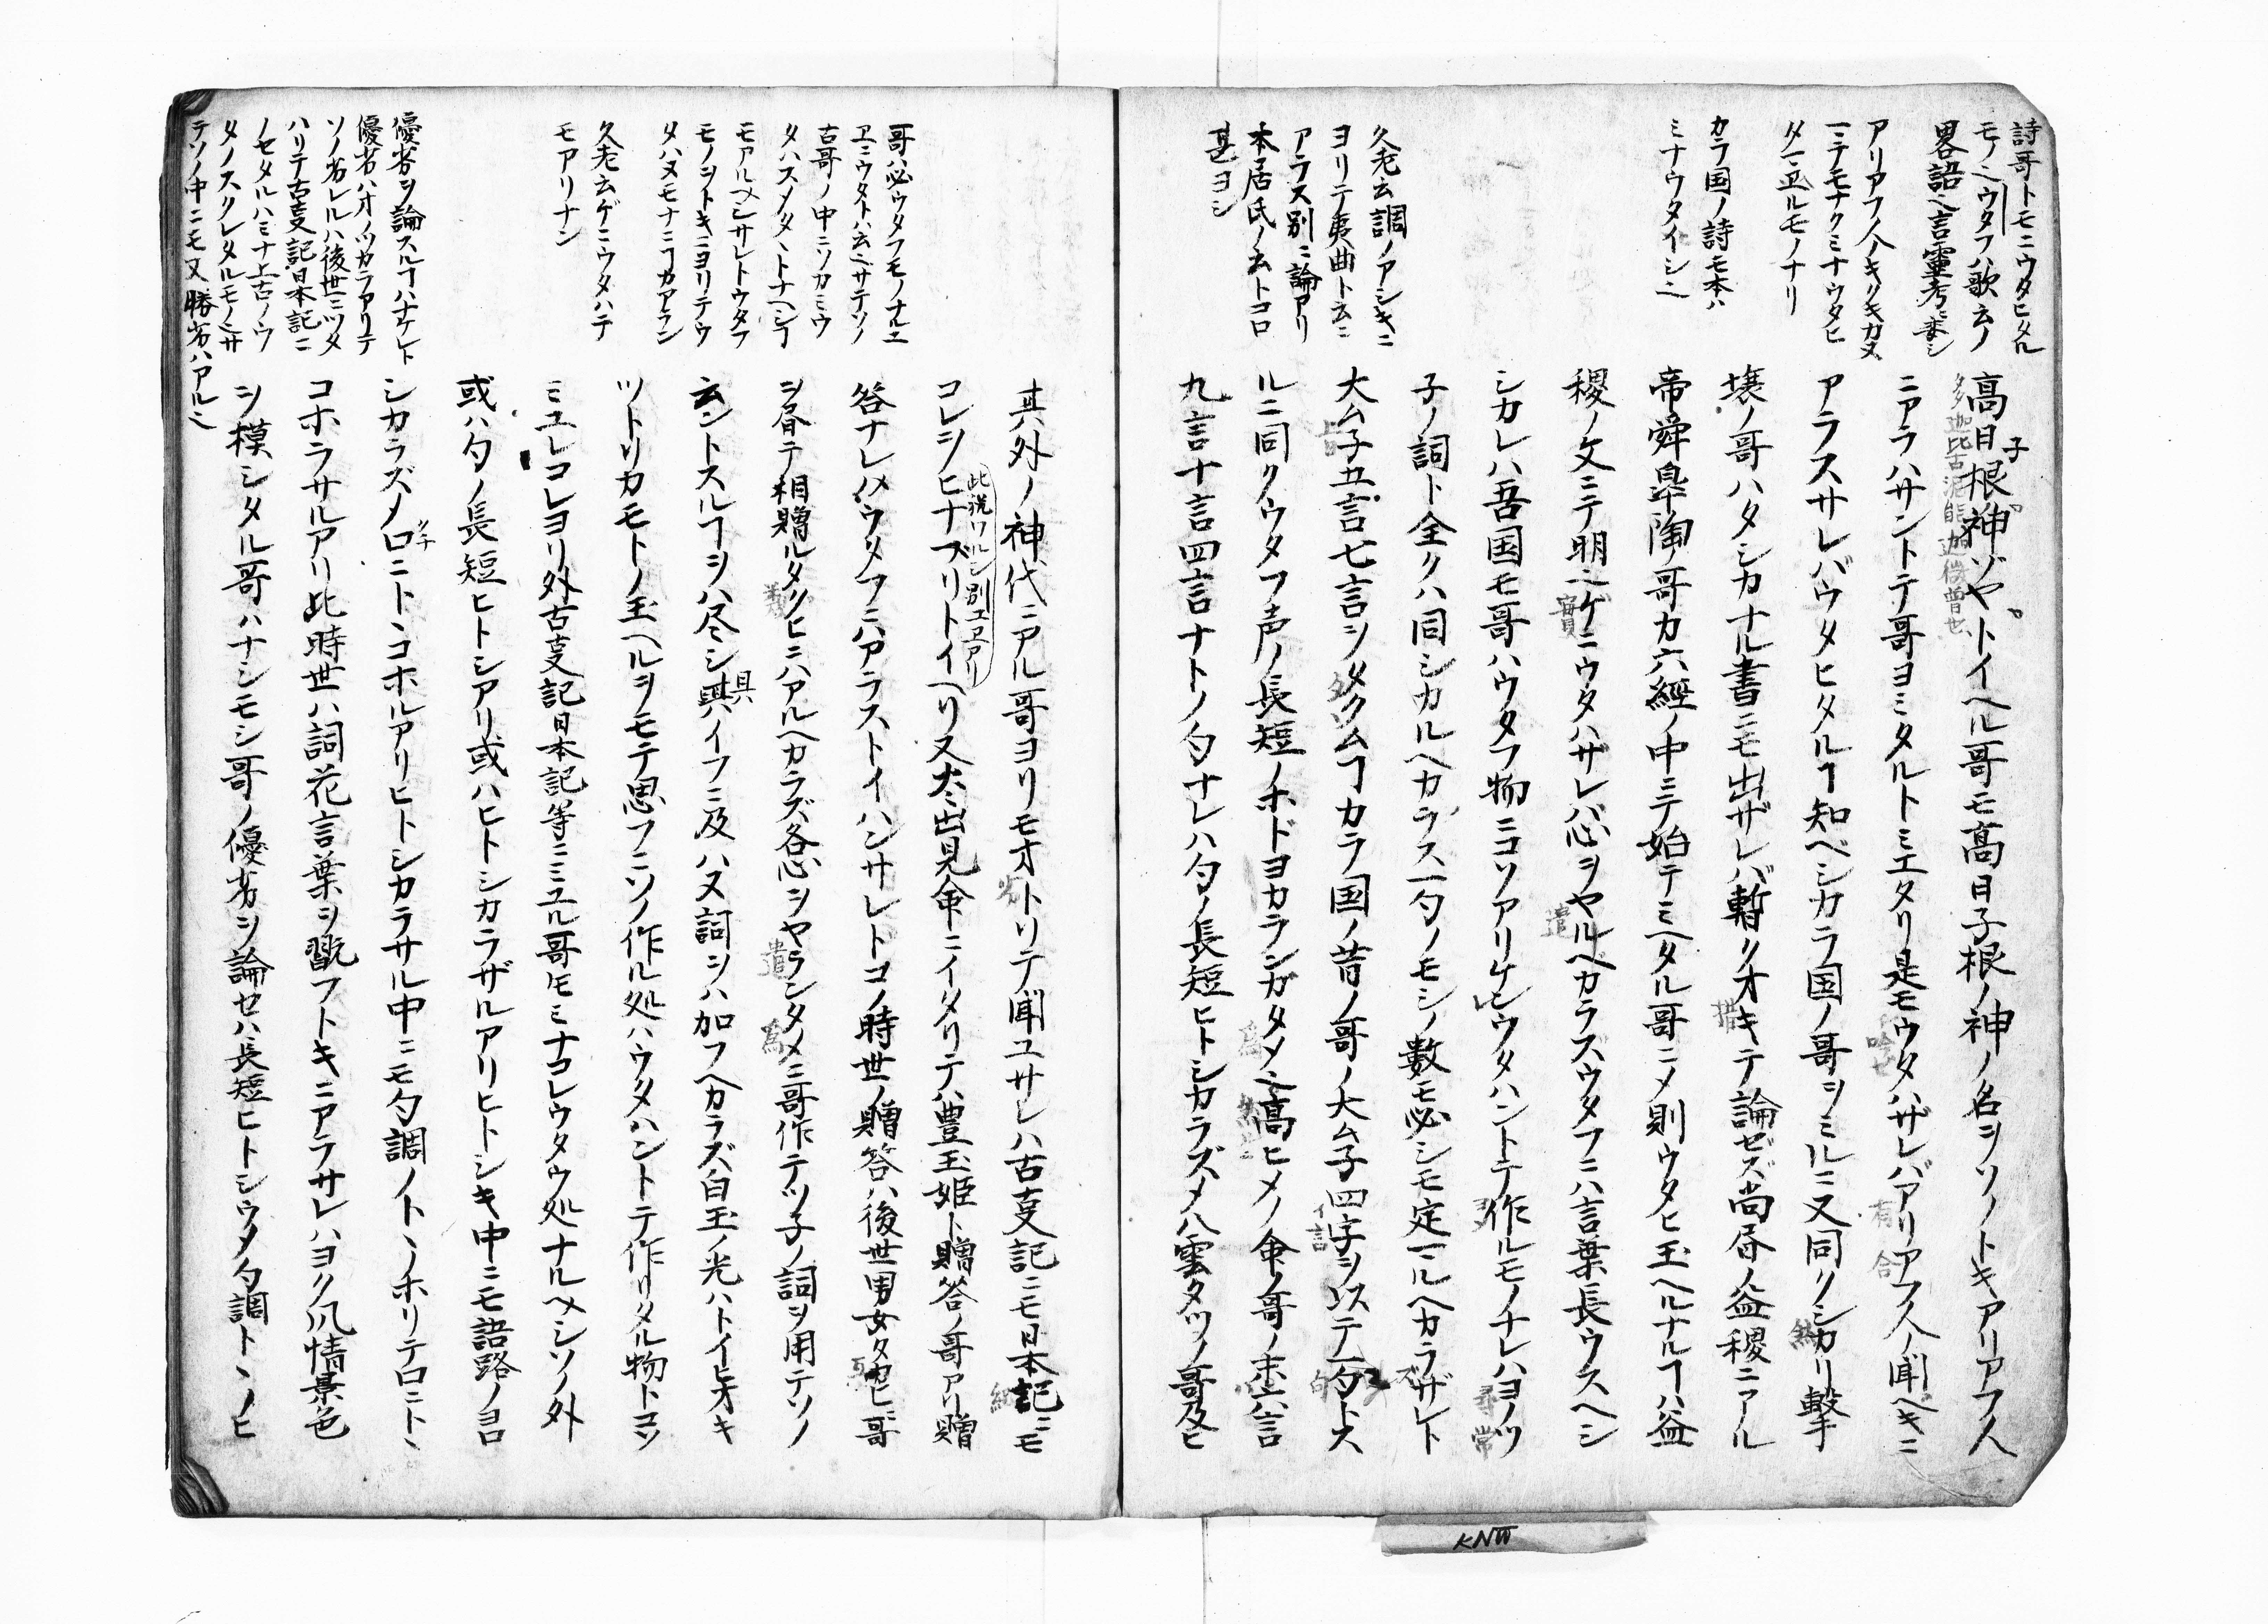 詩哥トモニウタヒタル
モノ也ウタフハ歌云ノ
畧語也言霊考ニ委シ
アリアフ人ノキヽキカヌ
ニテモナクミナウタヒ
タルモノナリ
カラ国ノ詩モ本ハ
ミナウタイシ也
久老云調ノアシキニ
ヨリテ夷曲ト云ニ
アラス別ニ論アリ
本居氏ノ云トコロ
甚ヨシ
高日子根神ゾヤトイヘル哥モ高日子根ノ神ノ名ヲソノトキアリアフ人
多迦比古泥能迦微曽也
ニアラハサントテ哥ヨミタルトミエタリ是モウタハザレバアリアフ人ノ聞ヘキニ
アラスサレバウタヒタルヿ知ベシカラ国ノ哥ヲミルニ又同クシカリ撃
壌ノ哥ハタシカナル書ニモ出ザレバ暫クオキテ論ゼズ尚昏ノ益稷ニアル
帝舜皐陶ノ哥カ六經ノ中ニテ始テミヘタル哥ニメ則ウタヒ玉ヘルナルヿハ益
稷ノ文ニテ明也ケニウタハザレバ心ヲヤルヘカラスウタフニハ言葉長ウスヘシ
シカレハ吾国モ哥ハウタフ物ニコソアリケレウタハントテ作ルモノナレハヨノツ
子ノ詞ト全クハ同シカルヘカラス一句ノモシノ數モ必シモ定マルヘカラザレト
大ムネ五言七言シメクムヿカラ国ノ昔ノ哥ノ大ムネ四字ヲ以テ一句ト大
ルニ同クウタフ声ノ長短ノホドヨカランガタメ也高ヒメノ命ノ哥ノ末六言
九言十言四言ナトノ句ナレハ句ノ長短ヒトシカラズメ八雲タツノ哥及ヒ
哥ハ必ウタフモノナルユ
ヱニウタトハ云也サテソノ
古哥ノ中ニソカミウ
タハスメタヽトナヘシヿ
モアルヘシサレトウタフ
モノヲトキニヨリテウ
タハヌモナニヿカアラン
久老云ゲニウタハテ
モアリナン
優劣ヲ論スルヿハナケレト
優劣ハオノツカラアリテ
ソノ劣レルハ後世ニツタ
ハリテ古事記日本記ニ
ノセタルハミナ上古ノウ
タノスクレタルモノ也サ
テソノ中ニモ又勝劣ハアル也
其外ノ神代ニアル哥ヨリモオトリテ聞ユサレハ古事記ニモ日本記ニモ
コレヲヒナブリトイヘリ又大出見命ニイタリテハ豊玉姫ト贈答ノ哥アリ贈
此説ワルシ別ユヱアリ
答ナレハウタフニハアラストイハンサレトコノ時世ノ贈答ハ後世男女タカヒニ哥
ヲ昏テ相贈ルタクヒニハアルヘカラズ各心ヲヤランタメニ哥作テツ子ノ詞ヲ用テソノ
云ントスルヿヲハ尽シ興ハイフニ及ハヌ詞ヲハ加フヘカラズ白玉ノ光ハトイヒオキ
ツトリカモトノ玉ヘルヲモテ思フニソノ作ル処ハウタハントテ作リタル物トコソ
ミユレコレヨリ外古事記日本記等ニミユル哥𪜈ミナコレウタウ処ナルヘシソノ外
或ハ句ノ長短ヒトシアリ或ハヒトシカラザルアリヒトシキ中ニモ語路ノヨロ
シカラズメ口ニトヽコホルアリヒトシカラサル中ニモ句調ノトヽノホリテ口ニトヽ
コホラサルアリ此時世ハ詞花言葉ヲ翫フトキニアラサレハヨク風情景色
ヲ模シタル哥ハナシモシ哥ノ優劣ヲ論セハ長短ヒトシウメ句調トヽノヒ
KNW